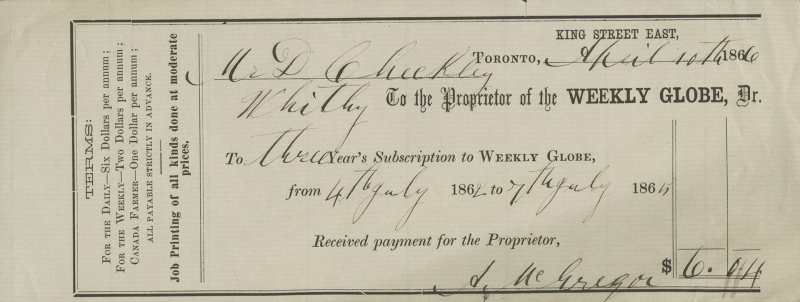 KING STREET EAST,
TORONTO, April 10th 1866
Mr D Checkley
Whitby To the Proprietor of the WEEKLY GLOBE, Dr.
To three Year's Subscription to WEEKLY GLOBE,
from 4th July 1862 to 7th July 186
Received payment for the Proprietor,
$ 6.
A. McGregor
TERMS:
FOR THE DAILY—Six Dollars per annum;
FOR THE WEEKLY—Two Dollars per annum;
CANADA FARMER—One Dollar per annum;
ALL PAYABLE STRICTLY IN ADVANCE.
Job Printing of all kinds done at moderate
prices.